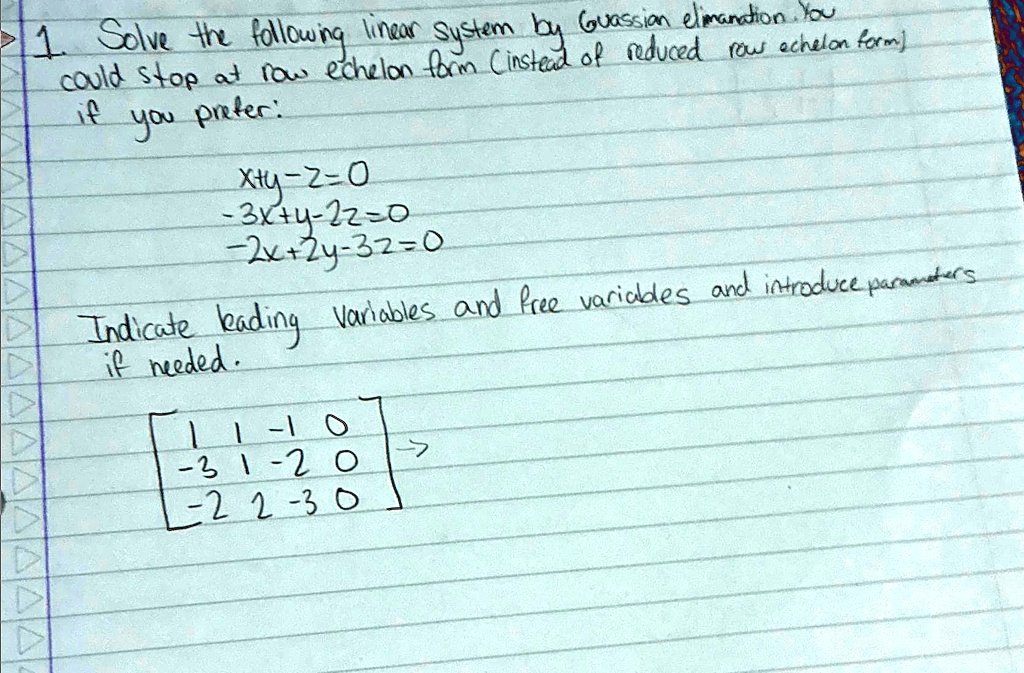 1. Solve the following linear system by Guassian elimanation. You
could stop at row echelon form (instead of reduced row echelon form)
if you prefer:
x+y-z=0
-3x+y-2z=0
-2x+2y-3z=0
Indicate leading variables and free variables and introduce parameters
if needed.
1 1 -1 0
-3 1 -2 0 →
-2 2 -3 0